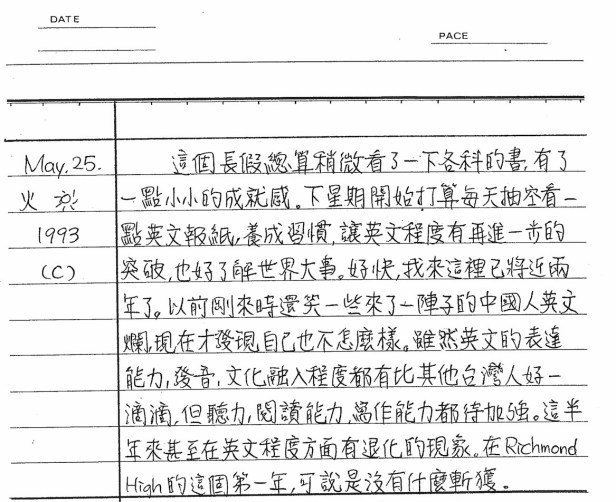 DATE
PACE
May. 25.
火
1993
(C)
這個長假總算稍微看了一下各科的書,有了
一點小小的成就感。下星期開始打算每天抽空看一
點英文報紙,養成習慣,讓英文程度有再進一步的
突破,也好了解世界大事。好快,我來這裡已將近兩
年了。以前剛來時還笑一些來了一陣子的中國人英文
爛,現在才發現自己也不怎麼樣。雖然英文的表達
能力,發音,文化融入程度都有比其他台灣人好一
滴滴,但聽力,閱讀能力,寫作能力都待加強。這半
年來甚至在英文程度方面有退化的現象。在Richmond
High的這個第一年,可說是沒有什麼斬獲。